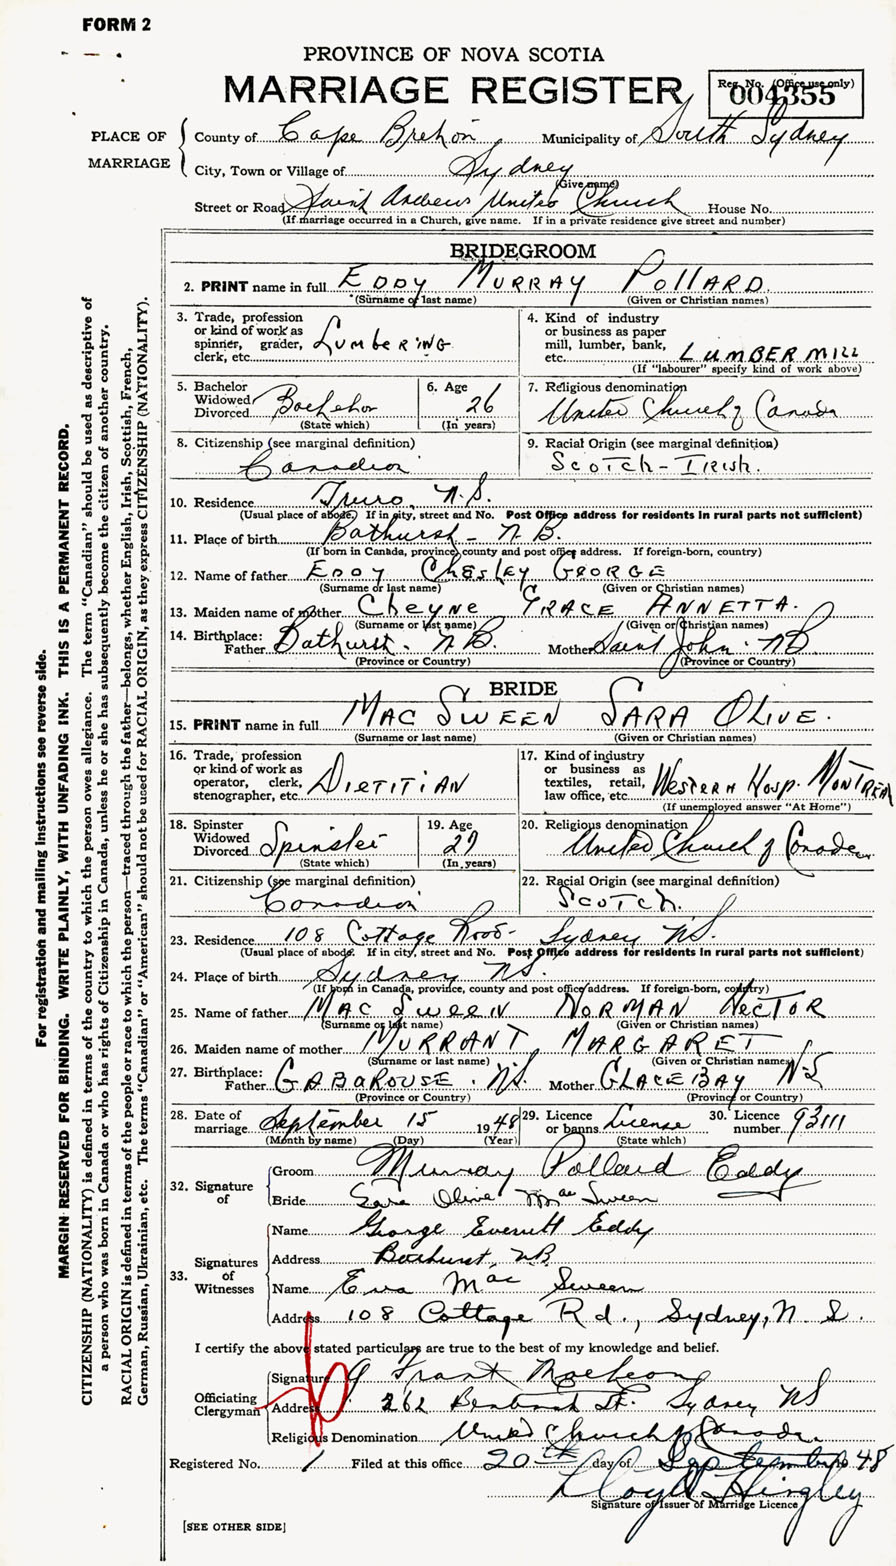 FORM 2
PROVINCE OF NOVA SCOTIA
MARRIAGE REGISTER
Reg. No. (Office use only)
004355
PLACE OF MARRIAGE
County of Cape Breton Municipality of South Sydney
City, Town or Village of Sydney
(Give name)
Street or Road Saint Andrews United Church House No.
(If marriage occurred in a Church, give name. If in a private residence give street and number)
BRIDEGROOM
2. PRINT name in full EDDY MURRAY POLLARD
(Surname of last name) (Given or Christian names)
3. Trade, profession or kind of work as spinner, grader, clerk, etc. LUMBERING
4. Kind of industry or business as paper mill, lumber, bank, etc. LUMBER MILL
(If "labourer" specify kind of work above)
5. Bachelor Widowed Divorced Bachelor
(State which)
6. Age 26
(In years)
7. Religious denomination United Church of Canada
8. Citizenship (see marginal definition) Canadian
9. Racial Origin (see marginal definition) SCOTCH-IRISH.
10. Residence Truro, N.S.
(Usual place of abode. If in city, street and No. Post Office address for residents in rural parts not sufficient)
11. Place of birth Bathurst - N.B.
(If born in Canada, province, county and post office address. If foreign-born, country)
12. Name of father EDDY CHESLEY GEORGE
(Surname or last name) (Given or Christian names)
13. Maiden name of mother CHEYNE GRACE ANNETTA.
(Surname or last name) (Given or Christian names)
14. Birthplace: Father Bathurst. N.B. Mother Saint John. NB
(Province or Country) (Province or Country)
BRIDE
15. PRINT name in full MAC SWEEN SARA OLIVE.
(Surname or last name) (Given or Christian names)
16. Trade, profession or kind of work as operator, clerk, stenographer, etc. DIETITIAN
17. Kind of industry or business as textiles, retail, law office, etc. WESTERN HOSP. MONTREAL
(If unemployed answer "At Home")
18. Spinster Widowed Divorced Spinster
(State which)
19. Age 27
(In years)
20. Religious denomination United Church of Canada
21. Citizenship (see marginal definition) Canadian
22. Racial Origin (see marginal definition) SCOTCH.
23. Residence 108 Cottage Road - Sydney NS.
(Usual place of abode. If in city, street and No. Post Office address for residents in rural parts not sufficient)
24. Place of birth Sydney NS.
(If born in Canada, province, county and post office address. If foreign-born, country)
25. Name of father MAC SWEEN NORMAN HECTOR
(Surname or last name) (Given or Christian names)
26. Maiden name of mother MURRANT MARGARET
(Surname or last name) (Given or Christian names)
27. Birthplace: Father GABAROUSE. NS. Mother GLACE BAY N-S
(Province or Country) (Province or Country)
28. Date of marriage September 15 1948
(Month by name) (Day) (Year)
29. Licence or banns License
(State which)
30. Licence number 93111
32. Signature of
Groom Murray Pollard Eddy
Bride Sara Olive MacSween
33. Signatures of Witnesses
Name George Everett Eddy
Address Bathurst, NB.
Name Eva MacSween
Address 108 Cottage Rd., Sydney, N.S.
I certify the above stated particulars are true to the best of my knowledge and belief.
Officiating Clergyman
Signature Grant MacLeong
Address 262 St. Sydney NS
Religious Denomination United Church of Canada.
Registered No. 1 Filed at this office 20th day of September 1948
Lloyd Hingley
Signature of Issuer of Marriage Licence
[SEE OTHER SIDE]
For registration and mailing instructions see reverse side.
MARGIN RESERVED FOR BINDING. WRITE PLAINLY, WITH UNFADING INK. THIS IS A PERMANENT RECORD.
CITIZENSHIP (NATIONALITY) is defined in terms of the country to which the person owes allegiance. The term "Canadian" should be used as descriptive of
a person who was born in Canada or who has rights of Citizenship in Canada, unless he or she has subsequently become the citizen of another country.
RACIAL ORIGIN is defined in terms of the people or race to which the person—traced through the father—belongs, whether English, Irish, Scottish, French,
German, Russian, Ukrainian, etc. The terms "Canadian" or "American" should not be used for RACIAL ORIGIN, as they express CITIZENSHIP (NATIONALITY).